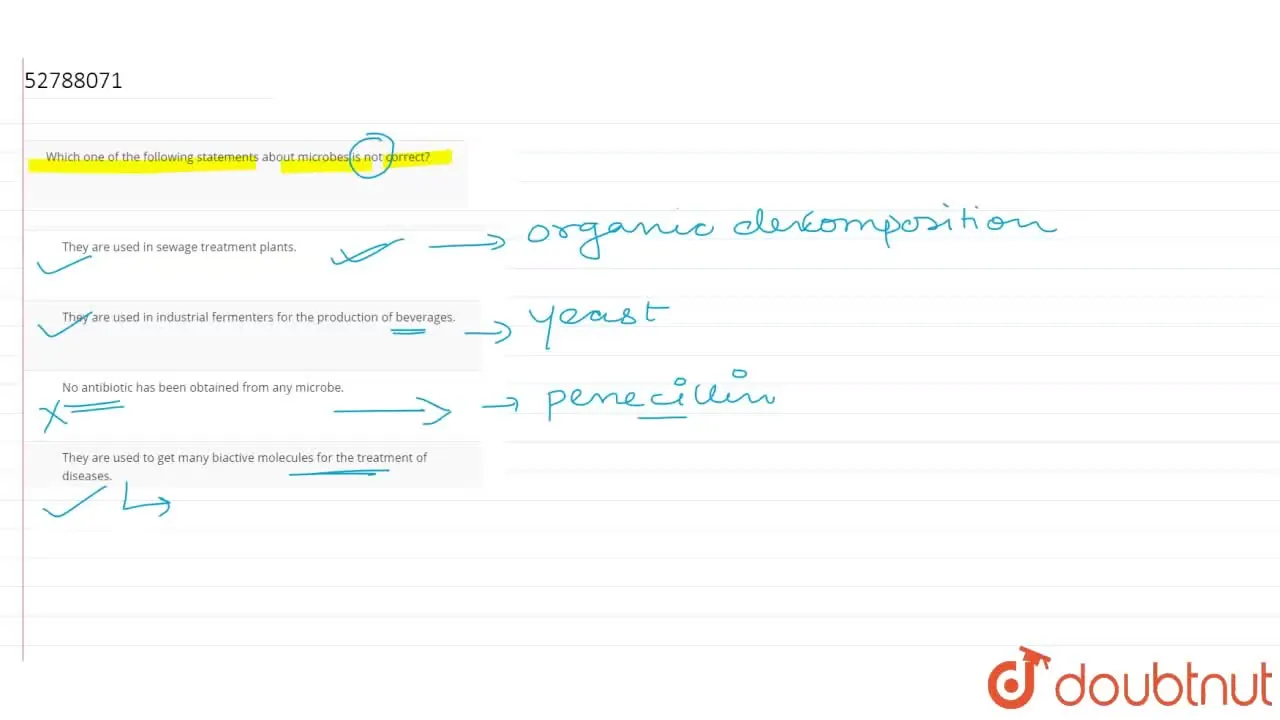 52788071
Which one of the following statements about microbes is not correct?
They are used in sewage treatment plants.
organic decomposition
They are used in industrial fermenters for the production of beverages.
yeast
No antibiotic has been obtained from any microbe.
penecillin
They are used to get many biactive molecules for the treatment of
diseases.
doubtnut